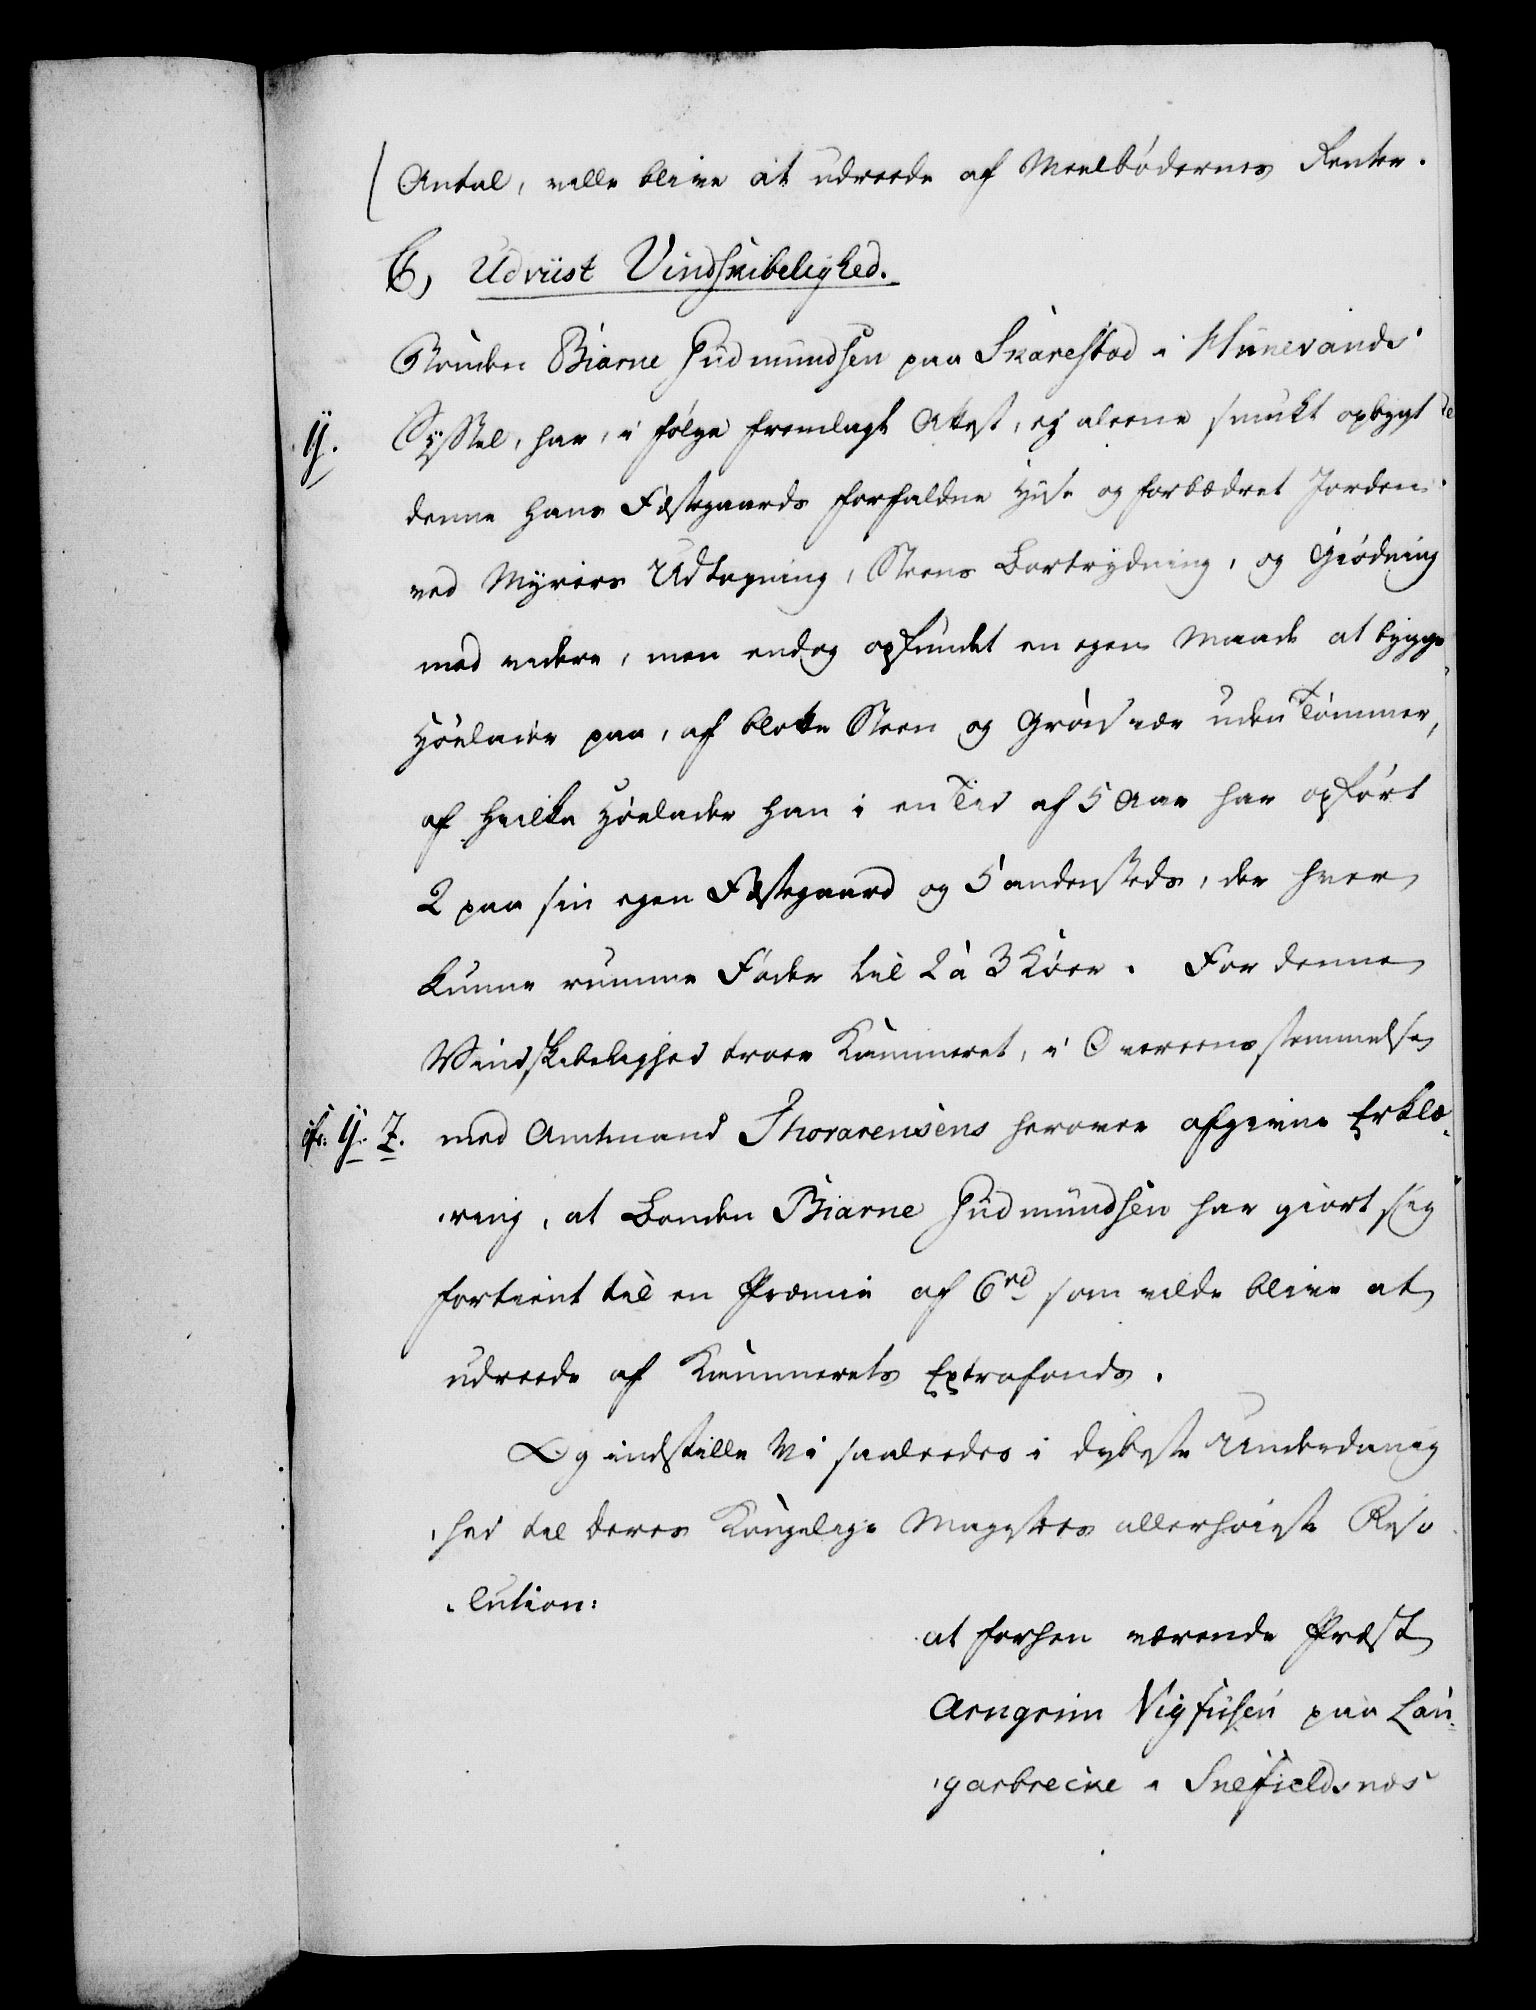 Antal, ville blive at udreede af Meelbødernes Renter.
C, Udviist Vindskibelighed.
Bonden Biarne Gudmundsen paa Skarestad i Hunevands
Y.
Syssel, har, i følge fremlagt Attest, ej aleene smukt opbygt de
denne hans Fæstegaards forfaldne Huse og forbædret Jorden
ved Myrers Udtapning, Steens Bortrydning, og Giødning
med videre, men endog opfundet en egen Maade at bygge
Høelader paa, af blotte Steen og Grøusvær uden Tømmer,
af hvilke Høelader han i en Tid af 5 Aar har opført
2 paa sin egen Fæstegaard og 5 andensteds, der hver
kunne rumme Foder til 2 à 3 Køer. For denne
Vindskibelighed troer Kammeret, i Overeensstemmelse
cfr. Y. Z.
med Amtmand Thorarensens herover afgivne Erklæ-
ring, at Bonden Biarne Gudmundsen har giort sig
fortient til en Præmie af 6 rd som vilde blive at
udreede af Kammerets Extrafonds.
Og indstille Vi saaleedes i dybeste Underdanig
hed til Deres Kongelige Majestets allerhøieste Reso
lution:
at forhen værende Præst
Arngrim Vigfusen paa Lau-
garbrecke i Snefieldsnæs